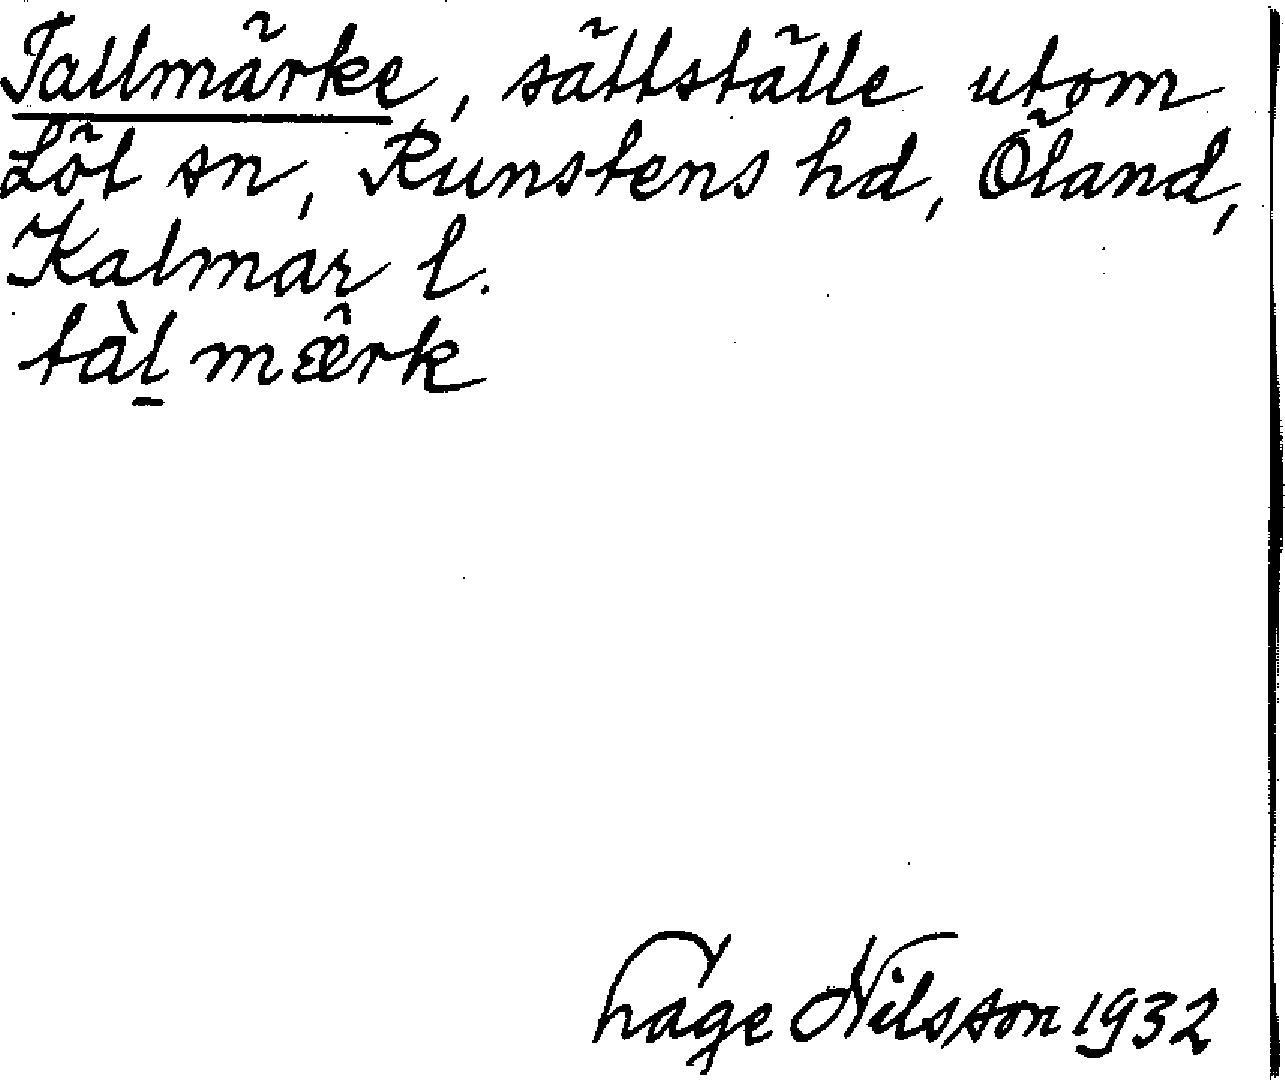 Tallmärke, sättställe utom
Löt sn, Runstens hd, Öland,
Kalmar l.
tàl̠ mæ̂rk
Hage Nilsson 1932